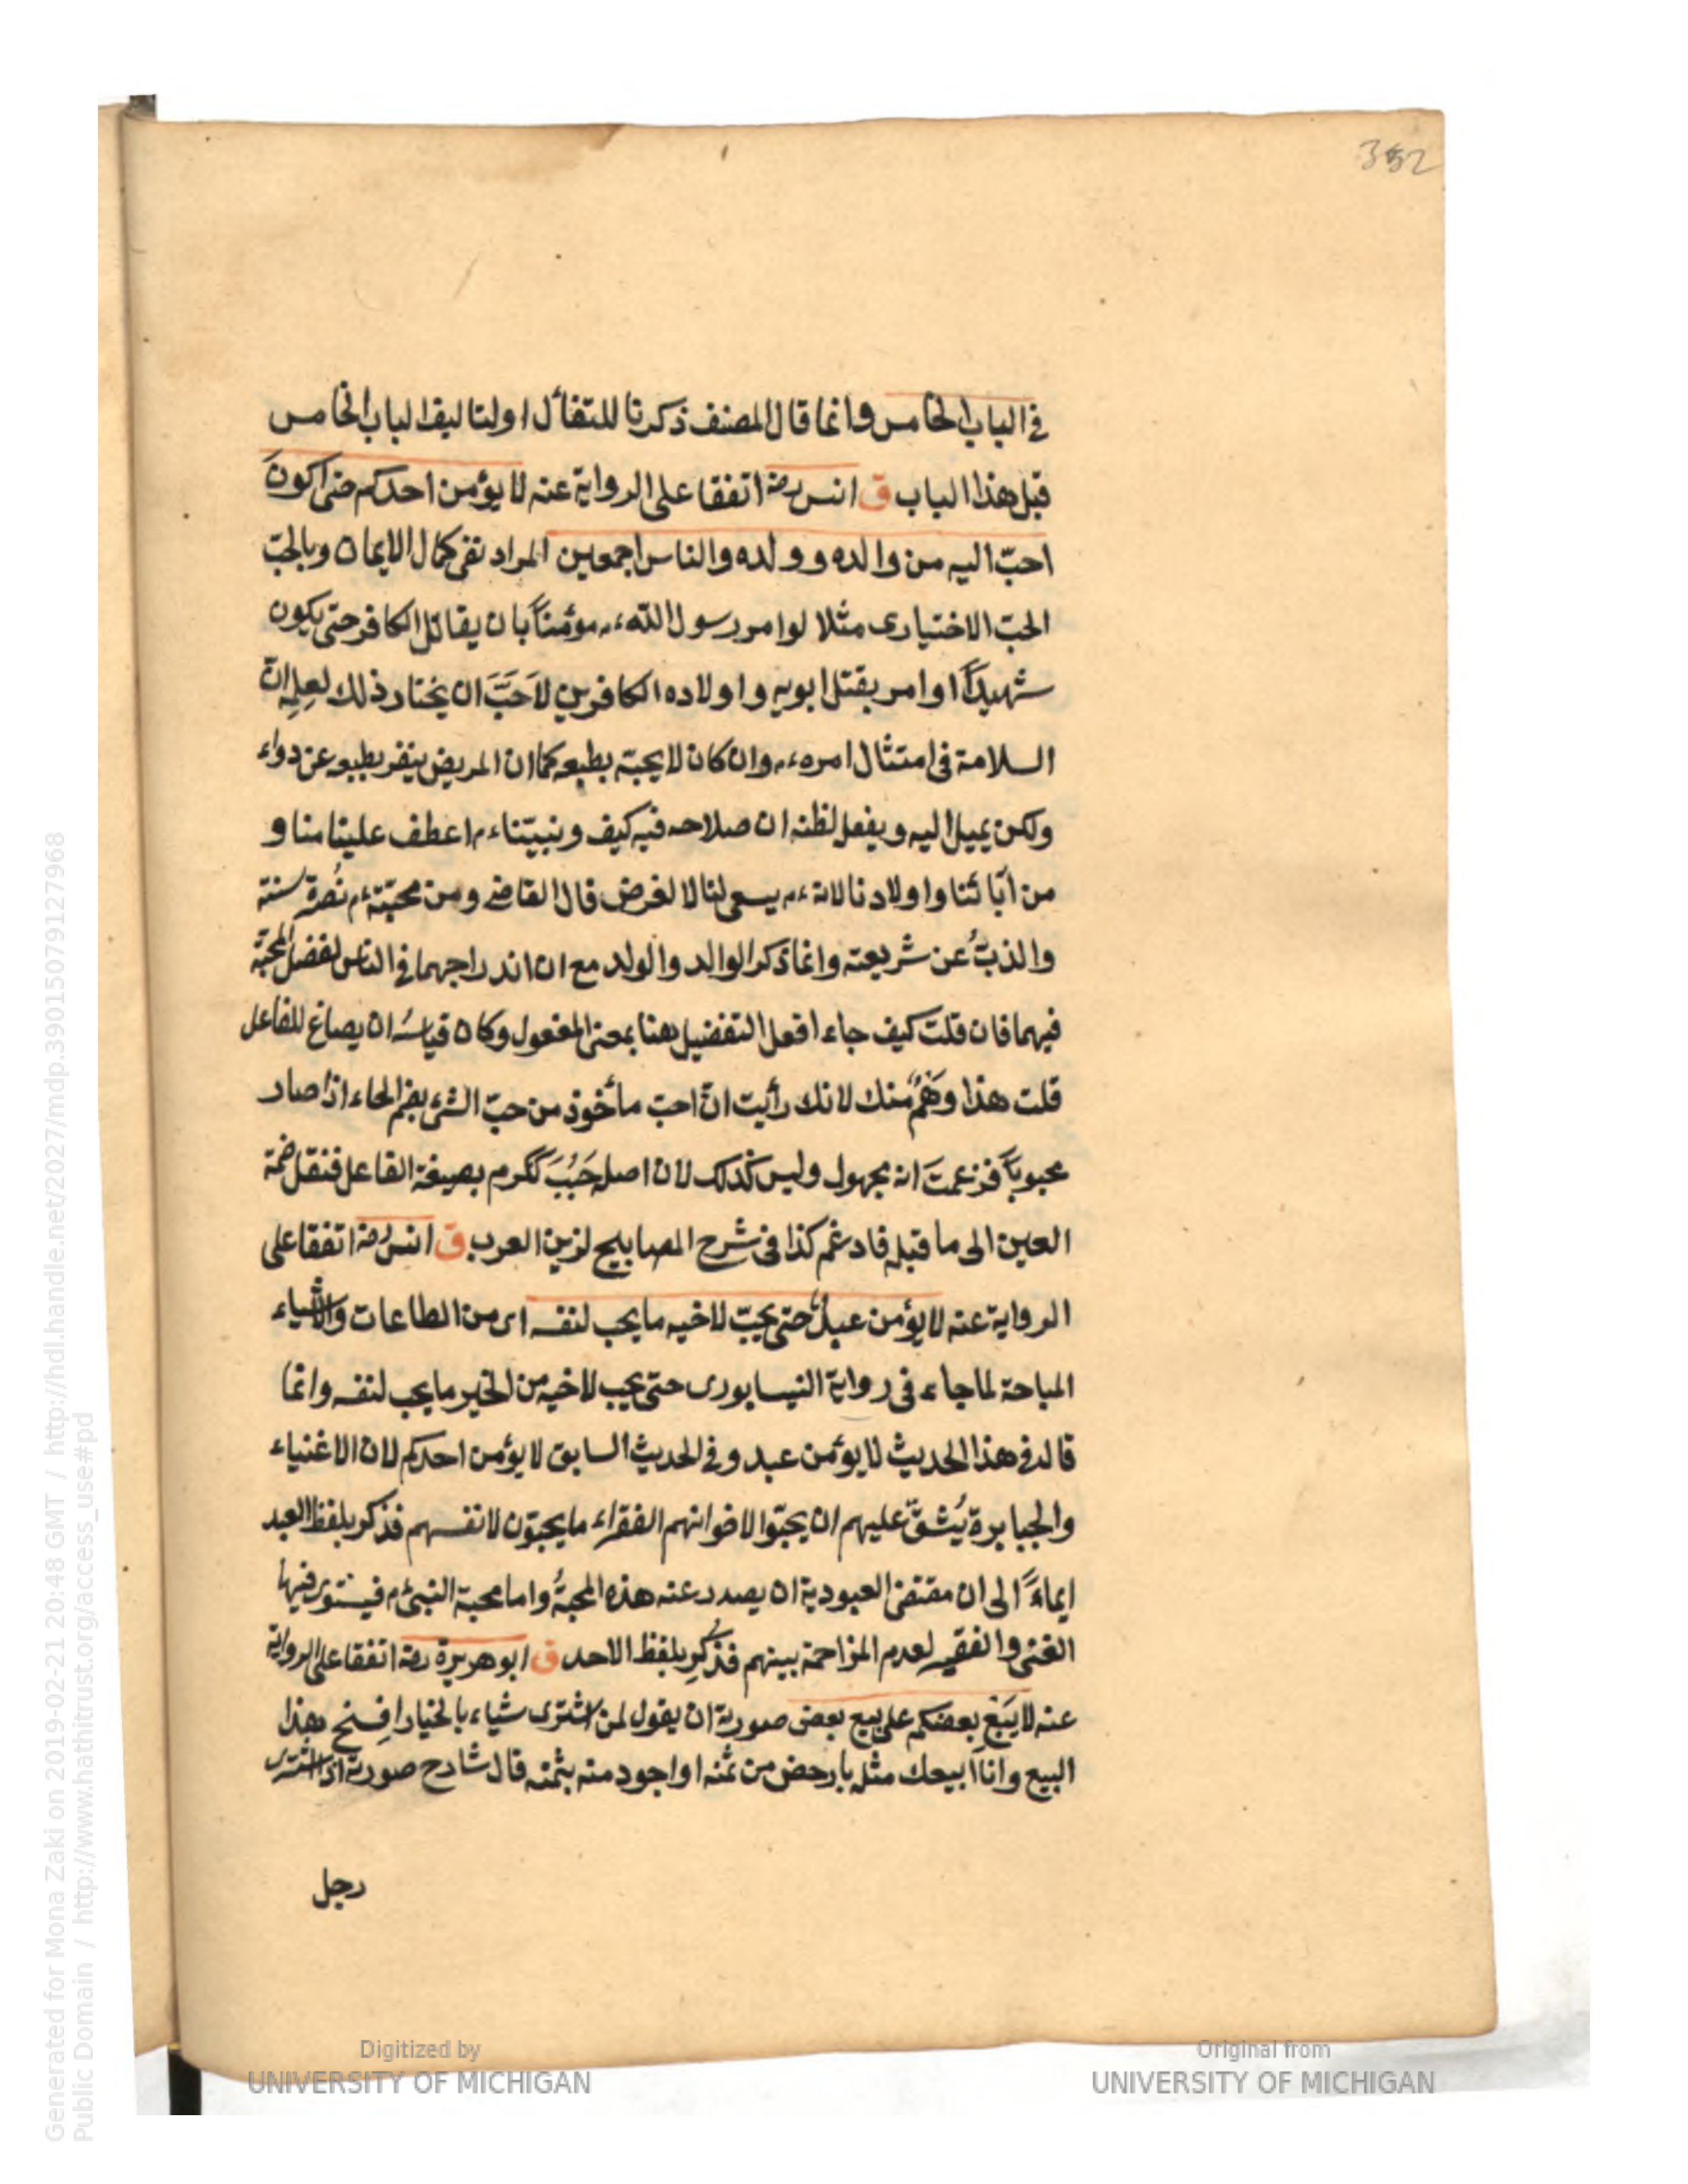 352
في الباب الخامس وانما قال المصنف ذكرنا للتفأل اولتاليف الباب الخامس
قبل هذا الباب ق انس رضه اتفقا على الرواية عنه لا يؤمن احدكم حتى اكونَ
احبّ اليه من والده وولده والناس اجمعين المراد نفى كمال الايمان وبالحبّ
الحبّ الاختيارى مثلا لو امر رسول الله عم مؤمناً بان يقاتل الكافر حتى يكون
شهيداً او امر بقتل ابويه واولاده الكافرين لاَحَبَّ ان يختار ذلك لعِلمِه انّ
السلامة في امتثال امره عم وان كان لا يحبّه بطبعه كما ان المريض ينفر بطبعه عن دواء
ولكن يميل اليه ويفعل لظنه ان صلاحه فيه كيف ونبيّنا عم اعطف علينا منا و
من آبائنا واولادنا لانه عم يسعى لنا لا لغرض قال القاضى ومن محبّته عم نُصرة سنته
والذبُّ عن شريعته وانما ذكر الوالد والولد مع ان اندراجهما في الناس لفضل المحبّة
فيهما فان قلتَ كيف جاء افعل التفضيل هنا بمعنى المفعول وكان قياسُه ان يصاغ للفاعل
قلت هذا وَهْمٌ منك لانك رأيت انّ احبّ مأخوذ من حبّ الشئ بضم الحاء اذا صار
محبوباً فزعمتَ انه مجهول وليس كذلك لان اصله حَبُبَ ككرم بصيغة الفاعل فنقل ضمة
العين الى ما قبله فادغم كذا فى شرح المصابيح لزين العرب ق انس رضه اتفقا على
الرواية عنه لا يؤمن عبدٌ حتى يحبّ لاخيه ما يحب لنفسه اى من الطاعات والاشياء
المباحة لما جاء فى رواية النيسابورى حتى يحب لاخيه من الخير ما يحب لنفسه وانما
قال فى هذا الحديث لا يؤمن عبد وفى الحديث السابق لا يؤمن احدكم لان الاغنياء
والجبابرة يُشقّ عليهم ان يحبّوا لاخوانهم الفقراء ما يحبّون لانفسهم فذكر بلفظ العبد
ايماءً الى ان مقتضى العبودية ان يصدر عنه هذه المحبةُ واما محبة النبىّ عم فيستوى فيها
الغنى والفقير لعدم المزاحمة بينهم فذُكِر بلفظ الاحد ق ابو هريرة رضه اتفقا على الرواية
عنه لا يَبِعْ بعضكم على بيع بعض صورته ان يقول لمن اشترى شياء بالخيار افسخ هذا
البيع وانا ابيعك مثله بارخص من ثمنه او اجود منه بثمنه قال شارح صورته اذا اشترى
رجل
Digitized by
UNIVERSITY OF MICHIGAN
Original from
UNIVERSITY OF MICHIGAN
Generated for Mona Zaki on 2019-02-21 20:48 GMT / http://hdl.handle.net/2027/mdp.39015079127968
Public Domain / http://www.hathitrust.org/access_use#pd